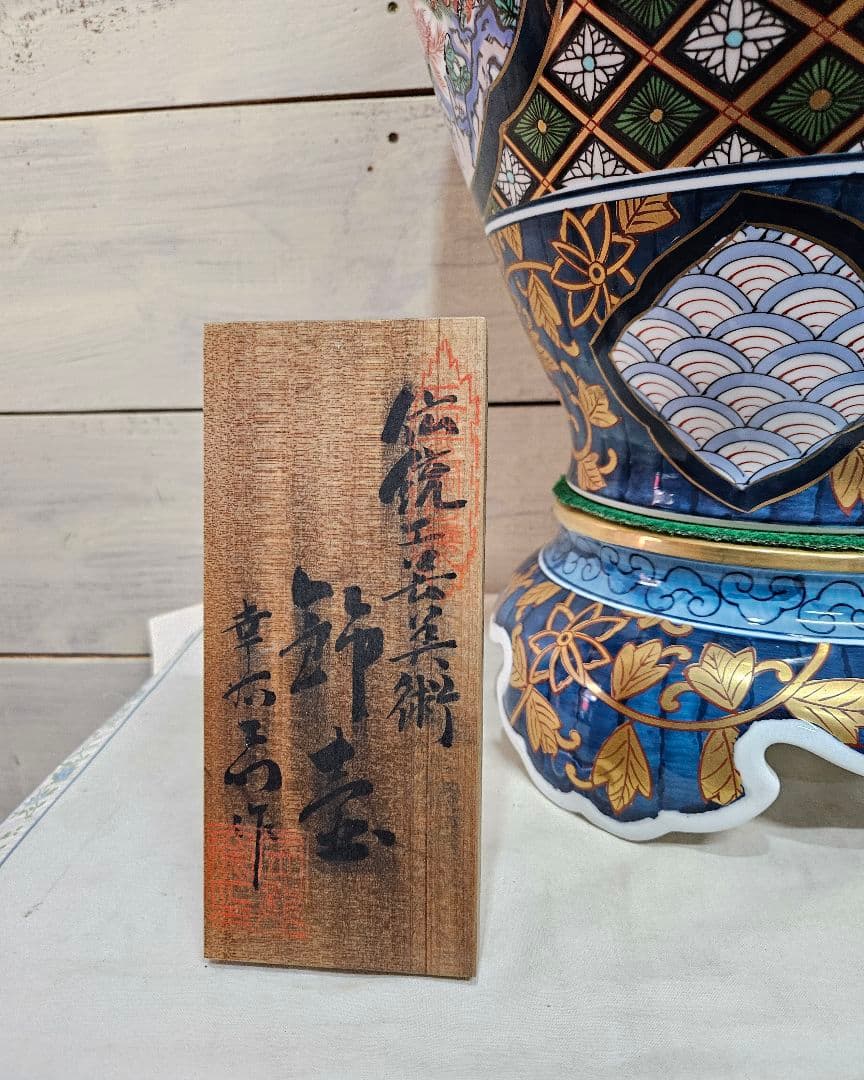 伝統工芸美術
飾壺
幸右エ門作